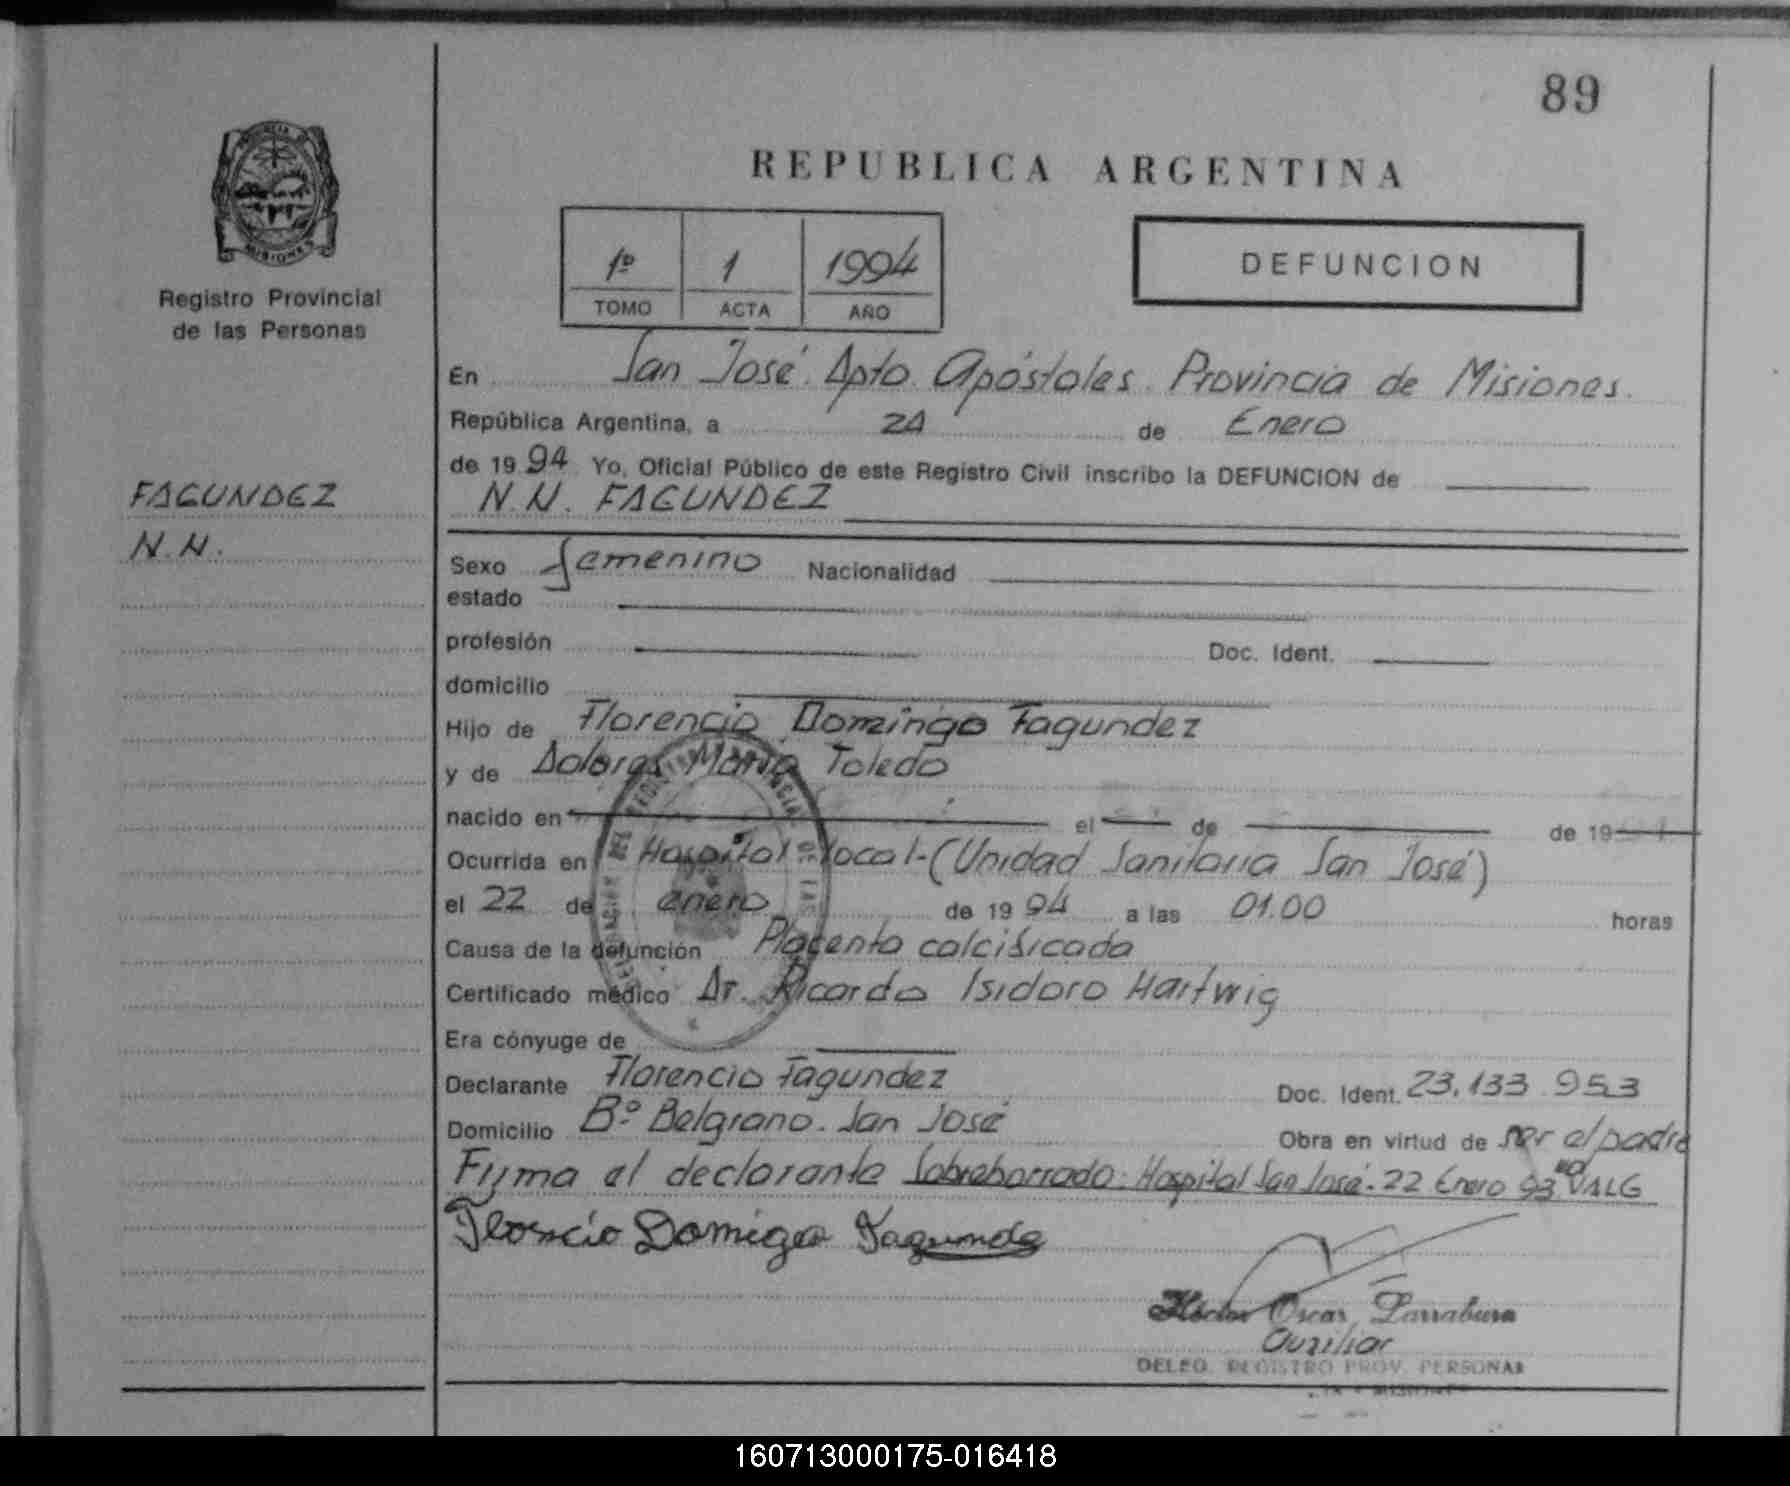 89
REPUBLICA ARGENTINA
1º 1 1994
TOMO ACTA AÑO
DEFUNCION
PROVINCIA DE
MISIONES
Registro Provincial
de las Personas
FAGUNDEZ
N.N.
En San José. Dpto. Apóstoles. Provincia de Misiones.
República Argentina, a 24 de Enero
de 1994 Yo, Oficial Público de este Registro Civil inscribo la DEFUNCION de
N.N. FAGUNDEZ
Sexo femenino Nacionalidad
estado
profesión Doc. Ident.
domicilio
Hijo de Florencio Domingo Fagundez
y de Dolores María Toledo
nacido en el de de 19
Ocurrida en Hospital local-(Unidad Sanitaria San José)
el 22 de enero de 1994 a las 01.00 horas
Causa de la defunción Placenta calcificada
Certificado médico Dr. Ricardo Isidoro Hartwig
Era cónyuge de
Declarante Florencio Fagundez Doc. Ident. 23.133.953
Domicilio Bº Belgrano. San José Obra en virtud de ser el padre
Firma el declarante Sobreborrado: Hospital San José. 22 Enero 93 no VALG
Florncio Domigo Fagunde
Héctor Oscar Larrabure
Auxiliar
DELEG. REGISTRO PROV. PERSONAS
160713000175-016418